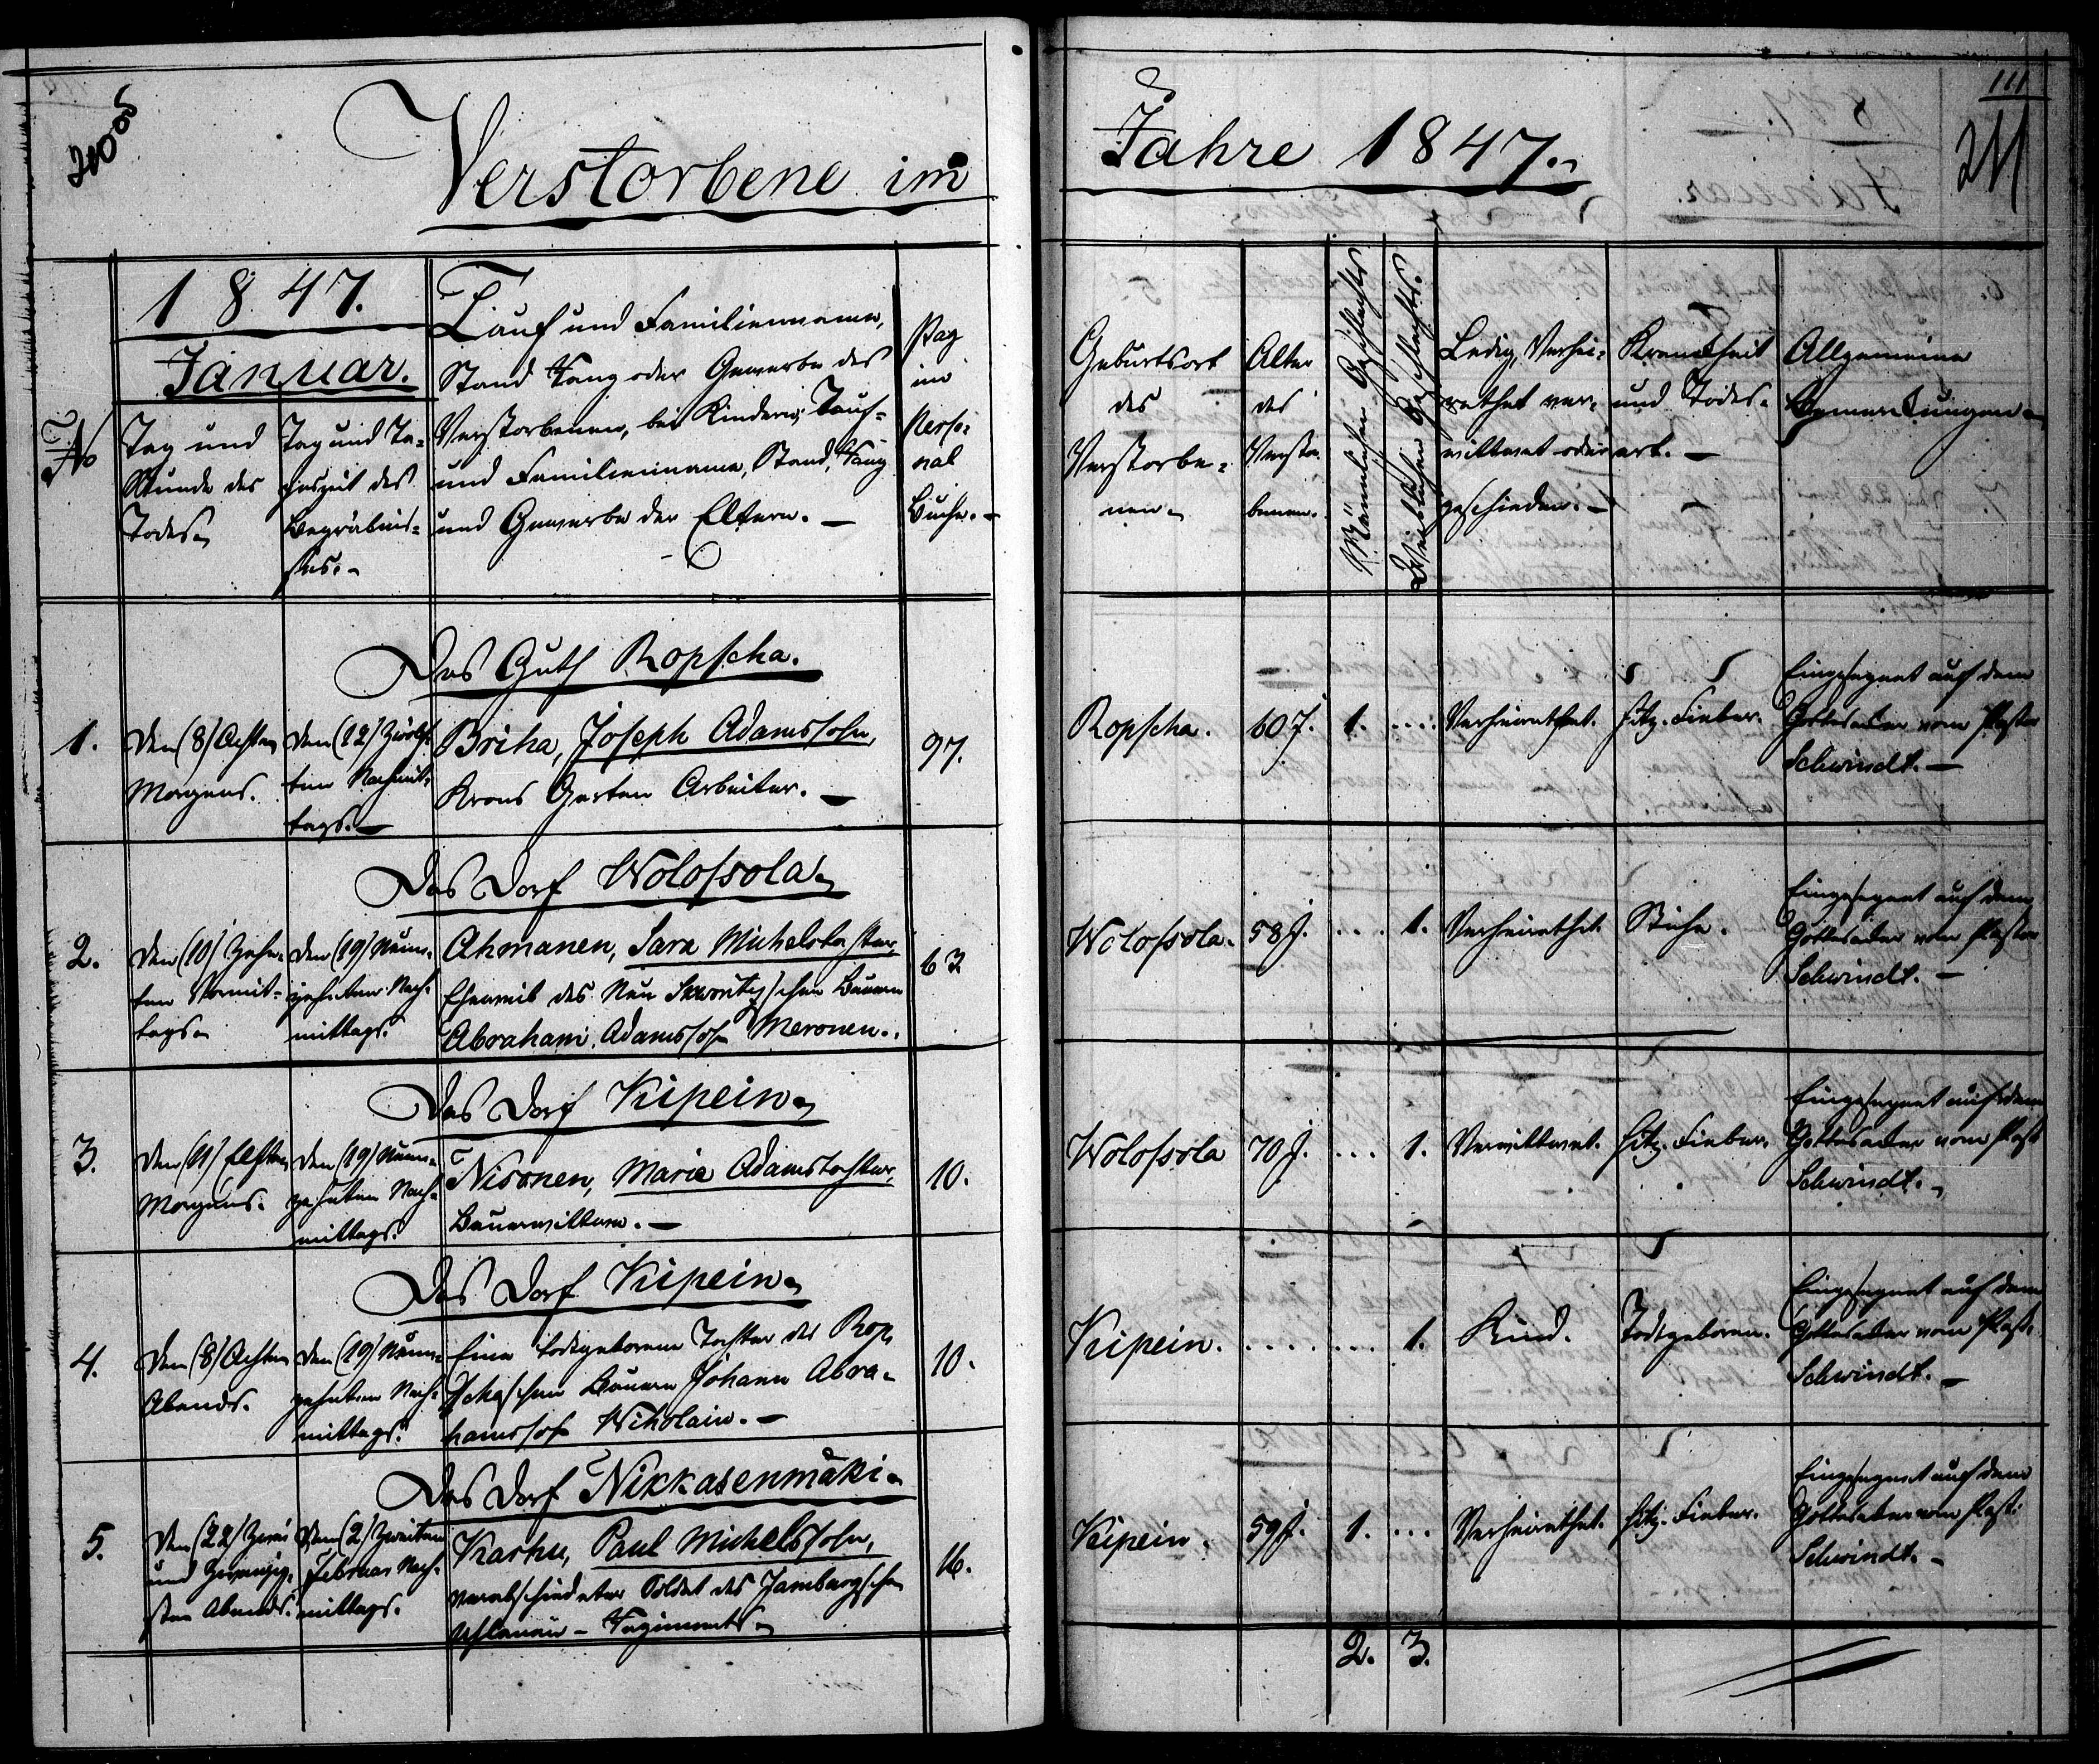 Verstorbene im
Jahre 1847.
111
211
1847.
Januar.
No
Tag und
Stunde des
Todes
Tag und Ta-
geszeit des
Begräbnis-
ses.
Tauf und Familienname,
Stand Rang oder Gewerbe des
Verstorbenen, bei Kindern: Tauf-
und Familienname, Stand, Rang
und Gewerbe der Eltern.
Pag
im
Perso-
nal
Buche.
Geburtsort
des
Verstorbe-
nen
Alter
des
Verstor-
benen.
Männlichen Geschlechts
Weiblichen Geschlechts.
Ledig, Verhei-
rathet ver-
wittwet oder
geschieden.
Krankheit
und Todes-
art.
Allgemeine
Bemerkungen
Das Guth Ropscha.
1.
Den (8) Achten
Morgens.
Den (12) Zwölf-
ten Nachmit-
tags.
Briha, Joseph Adamssohn,
Krons Garten Arbeiter.
97.
Ropscha.
60 J.
1.
....
Verheirathet.
Hitz. Fieber.
Eingesegnet auf dem
Gottesacker vom Pastor
Schwindt.
Das Dorf Wolossola
2.
Den (10) Zehn-
ten Vormit-
tags
Den (19) Neun-
zehnten Nach-
mittags.
Ahmanen, Sara Michelstochter,
Eheweib des Neu schen Bauern
Abraham Adamssohn Meronen.
63
Wolossola.
58 J.
...
1.
Verheirathet.
Stiche.
Eingesegnet auf dem
Gottesacker vom Pastor
Schwindt.
Das Dorf Kipein
3.
Den (11) Elften
Morgens.
Den (19) Neun-
zehnten Nach-
mittags.
Nisonen, Maria Adamstochter,
Bauerwittwe.
10.
Wolossola
70 J.
...
1.
Verwittwet.
Hitz. Fieber.
Eingesegnet auf dem
Gottesacker vom Past
Schwindt.
Das Dorf Kipein
4.
Den (8) Achten
Abends.
Den (19) Neun-
zehnten Nach-
mittags.
Eine todtgeborene Tochter des Rop-
schaschen Bauern Johann Abra-
hamssohn Wiholain.
10.
Kipein.
.......
1.
Kind.
Todtgeboren.
Eingesegnet auf dem
Gottesacker vom Past.
Schwindt.
Das Dorf Nikkasenmäki
5.
Den (22) Zwei
und Zwanzig-
sten Abends.
Den (2) Zweiten
Februar Nach-
mittags.
Karhu, Paul Michelssohn,
verabschiedeter Soldat des Jamburgschen
Uhlanen-Regiments
16.
Kipein.
59 J.
1.
...
Verheirathet.
Hitz. Fieber.
Eingesegnet auf dem
Gottesacker vom Past.
Schwindt.
2.
3.